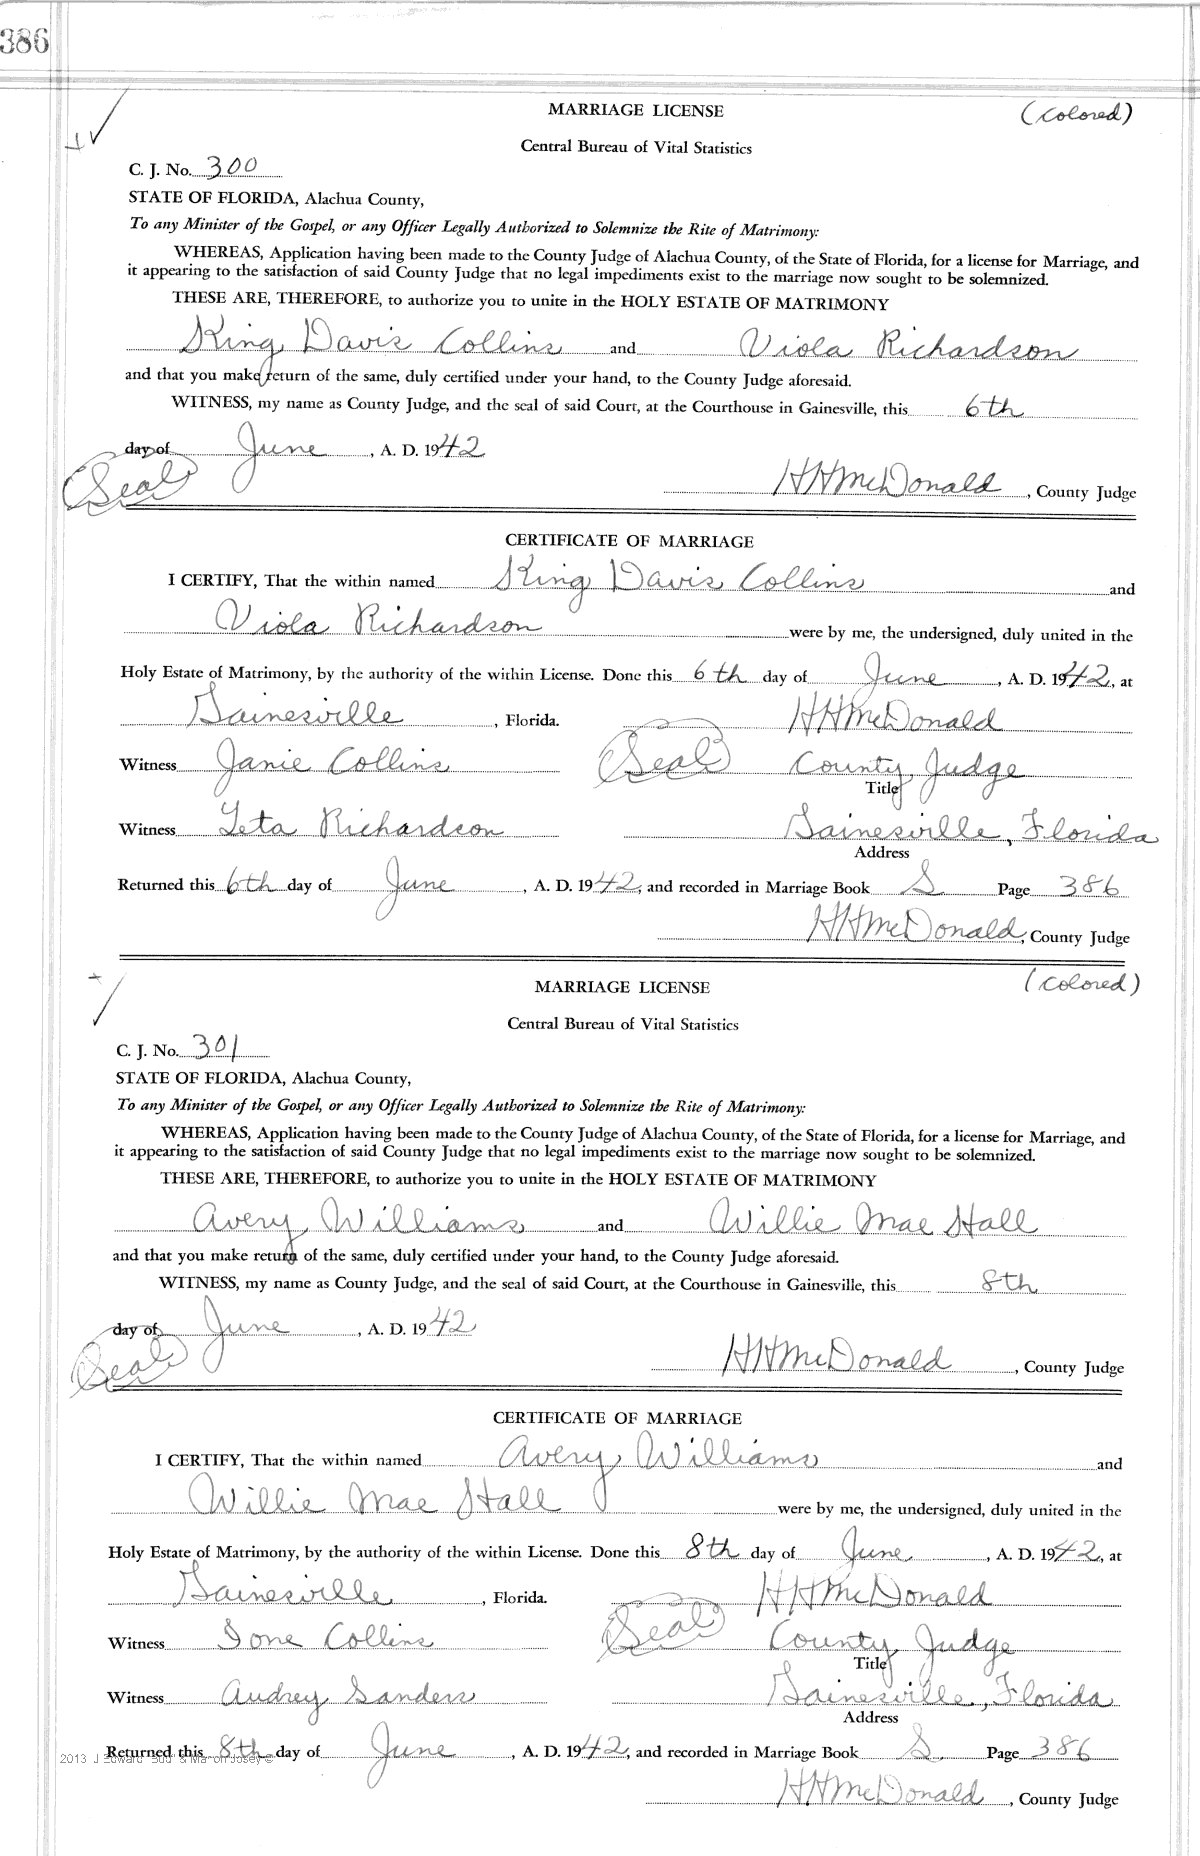 386
MARRIAGE LICENSE (Colored)
Central Bureau of Vital Statistics
C. J. No. 300
STATE OF FLORIDA, Alachua County,
To any Minister of the Gospel, or any Officer Legally Authorized to Solemnize the Rite of Matrimony:
WHEREAS, Application having been made to the County Judge of Alachua County, of the State of Florida, for a license for Marriage, and
it appearing to the satisfaction of said County Judge that no legal impediments exist to the marriage now sought to be solemnized.
THESE ARE, THEREFORE, to authorize you to unite in the HOLY ESTATE OF MATRIMONY
King Davis Collins and Viola Richardson
and that you make return of the same, duly certified under your hand, to the County Judge aforesaid.
WITNESS, my name as County Judge, and the seal of said Court, at the Courthouse in Gainesville, this 6th
day of June, A. D. 1942
(Seal) HHMcDonald, County Judge
CERTIFICATE OF MARRIAGE
I CERTIFY, That the within named King Davis Collins and
Viola Richardson were by me, the undersigned, duly united in the
Holy Estate of Matrimony, by the authority of the within License. Done this 6th day of June, A. D. 1942, at
Gainesville, Florida. HHMcDonald
Witness Janie Collins (Seal) County Judge
Title
Witness Leta Richardson Gainesville, Florida
Address
Returned this 6th day of June, A. D. 1942, and recorded in Marriage Book S Page 386
HHMcDonald, County Judge
MARRIAGE LICENSE (Colored)
Central Bureau of Vital Statistics
C. J. No. 301
STATE OF FLORIDA, Alachua County,
To any Minister of the Gospel, or any Officer Legally Authorized to Solemnize the Rite of Matrimony:
WHEREAS, Application having been made to the County Judge of Alachua County, of the State of Florida, for a license for Marriage, and
it appearing to the satisfaction of said County Judge that no legal impediments exist to the marriage now sought to be solemnized.
THESE ARE, THEREFORE, to authorize you to unite in the HOLY ESTATE OF MATRIMONY
Avery Williams and Willie Mae Hall
and that you make return of the same, duly certified under your hand, to the County Judge aforesaid.
WITNESS, my name as County Judge, and the seal of said Court, at the Courthouse in Gainesville, this 8th
day of June, A. D. 1942
(Seal) HHMcDonald, County Judge
CERTIFICATE OF MARRIAGE
I CERTIFY, That the within named Avery Williams and
Willie Mae Hall were by me, the undersigned, duly united in the
Holy Estate of Matrimony, by the authority of the within License. Done this 8th day of June, A. D. 1942, at
Gainesville, Florida. HHMcDonald
Witness Ione Collins (Seal) County Judge
Title
Witness Audrey Sanders Gainesville, Florida
Address
Returned this 8th day of June, A. D. 1942, and recorded in Marriage Book S Page 386
2013 J Edward
HHMcDonald, County Judge